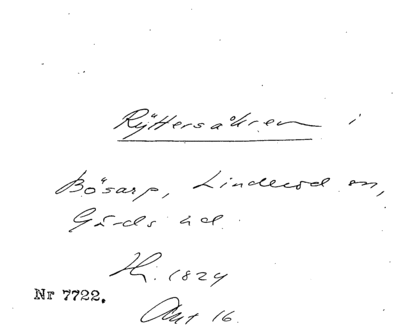 Ryttersåkren i
Bösarp, Linderöd sn,
Gärds hd.
Hi. 1824
Nr 7722.
Akt 16